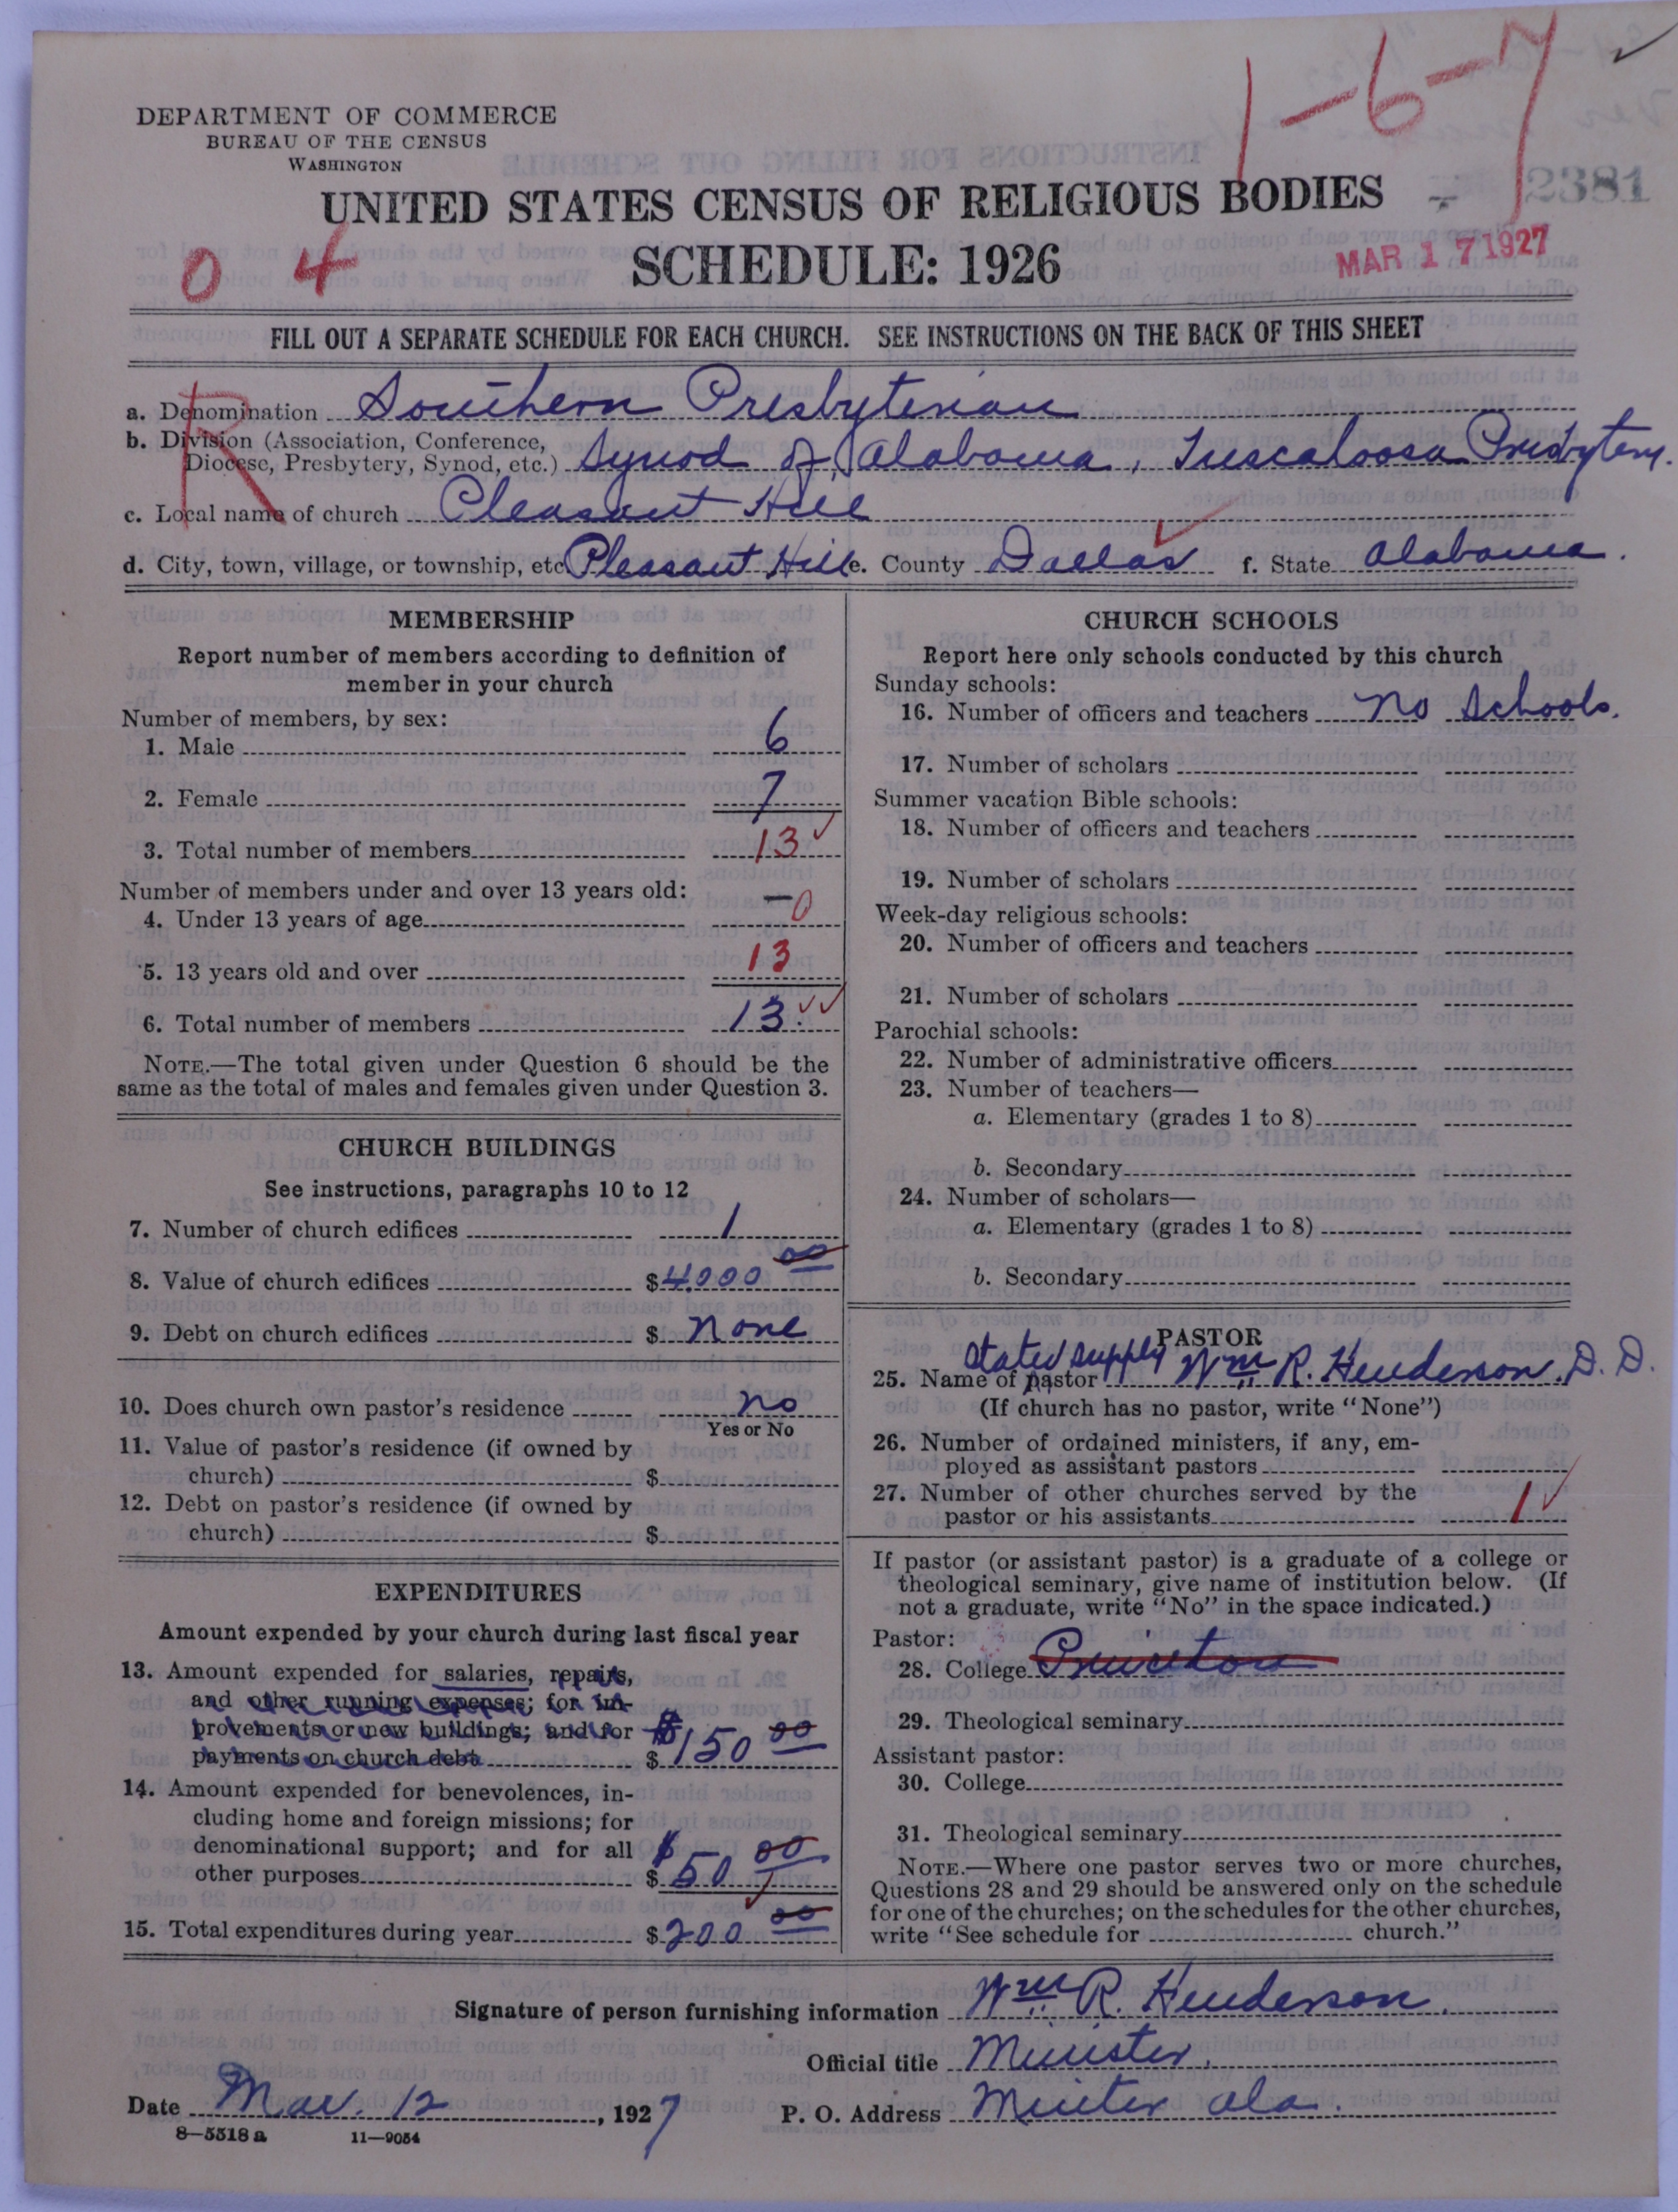 1-6-7
DEPARTMENT OF COMMERCE
BUREAU OF THE CENSUS
WASHINGTON
2381
UNITED STATES CENSUS OF RELIGIOUS BODIES
SCHEDULE: 1926
0 4
MAR 17 1927
FILL OUT A SEPARATE SCHEDULE FOR EACH CHURCH. SEE INSTRUCTIONS ON THE BACK OF THIS SHEET
R
a. Denomination Southern Presbyterian
b. Division (Association, Conference,
Diocese, Presbytery, Synod, etc.) Synod of Alabama, Tuscaloosa Presbytery.
c. Local name of church Pleasant Hill
d. City, town, village, or township, etc. Pleasant Hill e. County Dallas f. State Alabama.
MEMBERSHIP
Report number of members according to definition of
member in your church
Number of members, by sex:
1. Male 6
2. Female 7
3. Total number of members 13
Number of members under and over 13 years old:
4. Under 13 years of age – 0
5. 13 years old and over 13
6. Total number of members 13.
NOTE.—The total given under Question 6 should be the
same as the total of males and females given under Question 3.
CHURCH BUILDINGS
See instructions, paragraphs 10 to 12
7. Number of church edifices 1
8. Value of church edifices $4000 00
9. Debt on church edifices $ None
10. Does church own pastor's residence No
Yes or No
11. Value of pastor's residence (if owned by
church) $
12. Debt on pastor's residence (if owned by
church) $
EXPENDITURES
Amount expended by your church during last fiscal year
13. Amount expended for salaries, repairs,
and other running expenses; for im-
provements or new buildings; and for $
payments on church debt $150 00
14. Amount expended for benevolences, in-
cluding home and foreign missions; for
denominational support; and for all $
other purposes $50 00
15. Total expenditures during year $200 00
CHURCH SCHOOLS
Report here only schools conducted by this church
Sunday schools:
16. Number of officers and teachers No Schools.
17. Number of scholars
Summer vacation Bible schools:
18. Number of officers and teachers
19. Number of scholars
Week-day religious schools:
20. Number of officers and teachers
21. Number of scholars
Parochial schools:
22. Number of administrative officers
23. Number of teachers—
a. Elementary (grades 1 to 8)
b. Secondary
24. Number of scholars—
a. Elementary (grades 1 to 8)
b. Secondary
PASTOR
Stated supply
25. Name of pastor Wm R. Henderson, D.D.
(If church has no pastor, write "None")
26. Number of ordained ministers, if any, em-
ployed as assistant pastors
27. Number of other churches served by the
pastor or his assistants 1
If pastor (or assistant pastor) is a graduate of a college or
theological seminary, give name of institution below. (If
not a graduate, write "No" in the space indicated.)
Pastor:
28. College Princeton
29. Theological seminary
Assistant pastor:
30. College
31. Theological seminary
NOTE.—Where one pastor serves two or more churches,
Questions 28 and 29 should be answered only on the schedule
for one of the churches; on the schedules for the other churches,
write "See schedule for church."
Signature of person furnishing information Wm R. Henderson.
Official title Minister.
Date Mar. 12, 1927 P. O. Address Minter Ala.
8—5518 a 11—9054